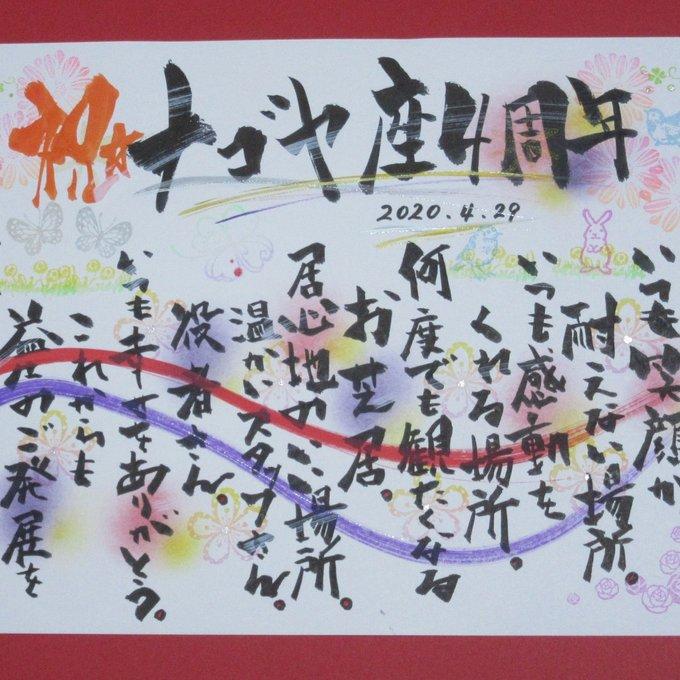 祝 ナゴヤ座4周年
2020.4.29
いつも笑顔が
耐えない場所。
いつも感動を
くれる場所。
何度でも観たくなる
お芝居。
居心地のいい場所。
温かいスタッフさん。
役者さん。
いつも幸せをありがとう。
これからも
益々のご発展を